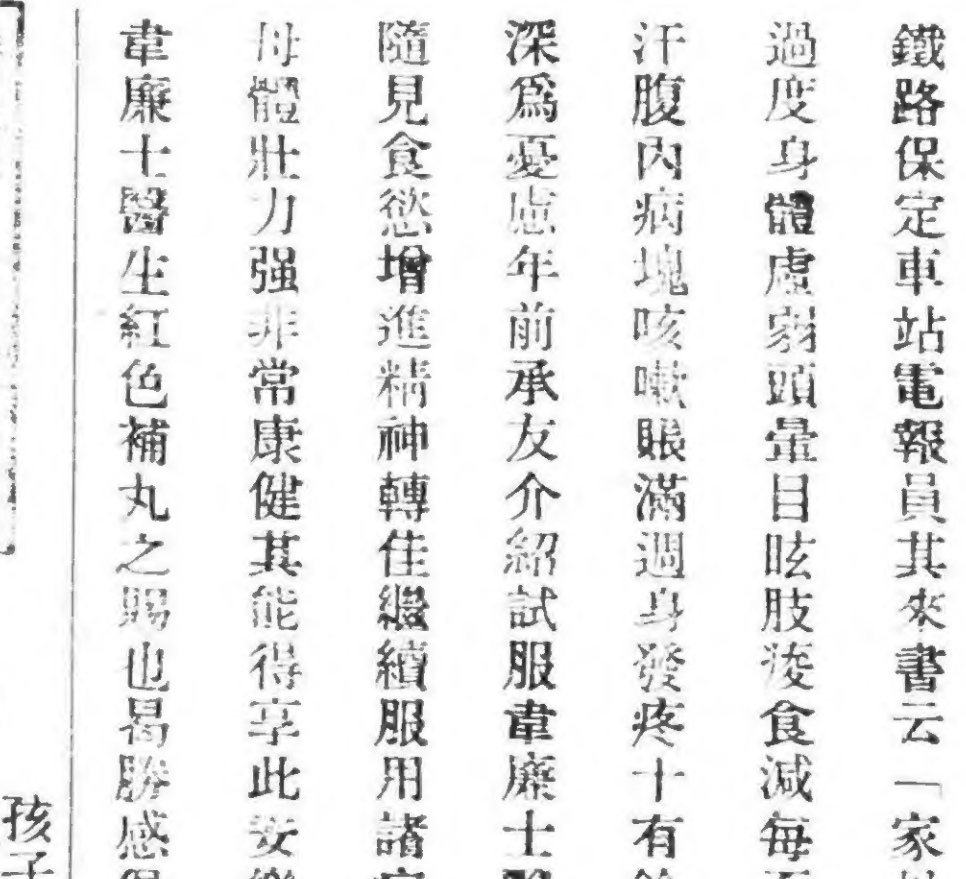 鐵路保定車站電報員其來書云「家
過度身體虛弱頭暈目眩肢痠食減每
汗腹內病塊咳嗽賬滿週身發疼十有
深爲憂慮年前承友介紹試服韋廉士
隨見食慾增進精神轉佳繼續服用諸
母體壯力强非常康健其能得享此安
韋廉士醫生紅色補丸之賜也曷勝感
孩子